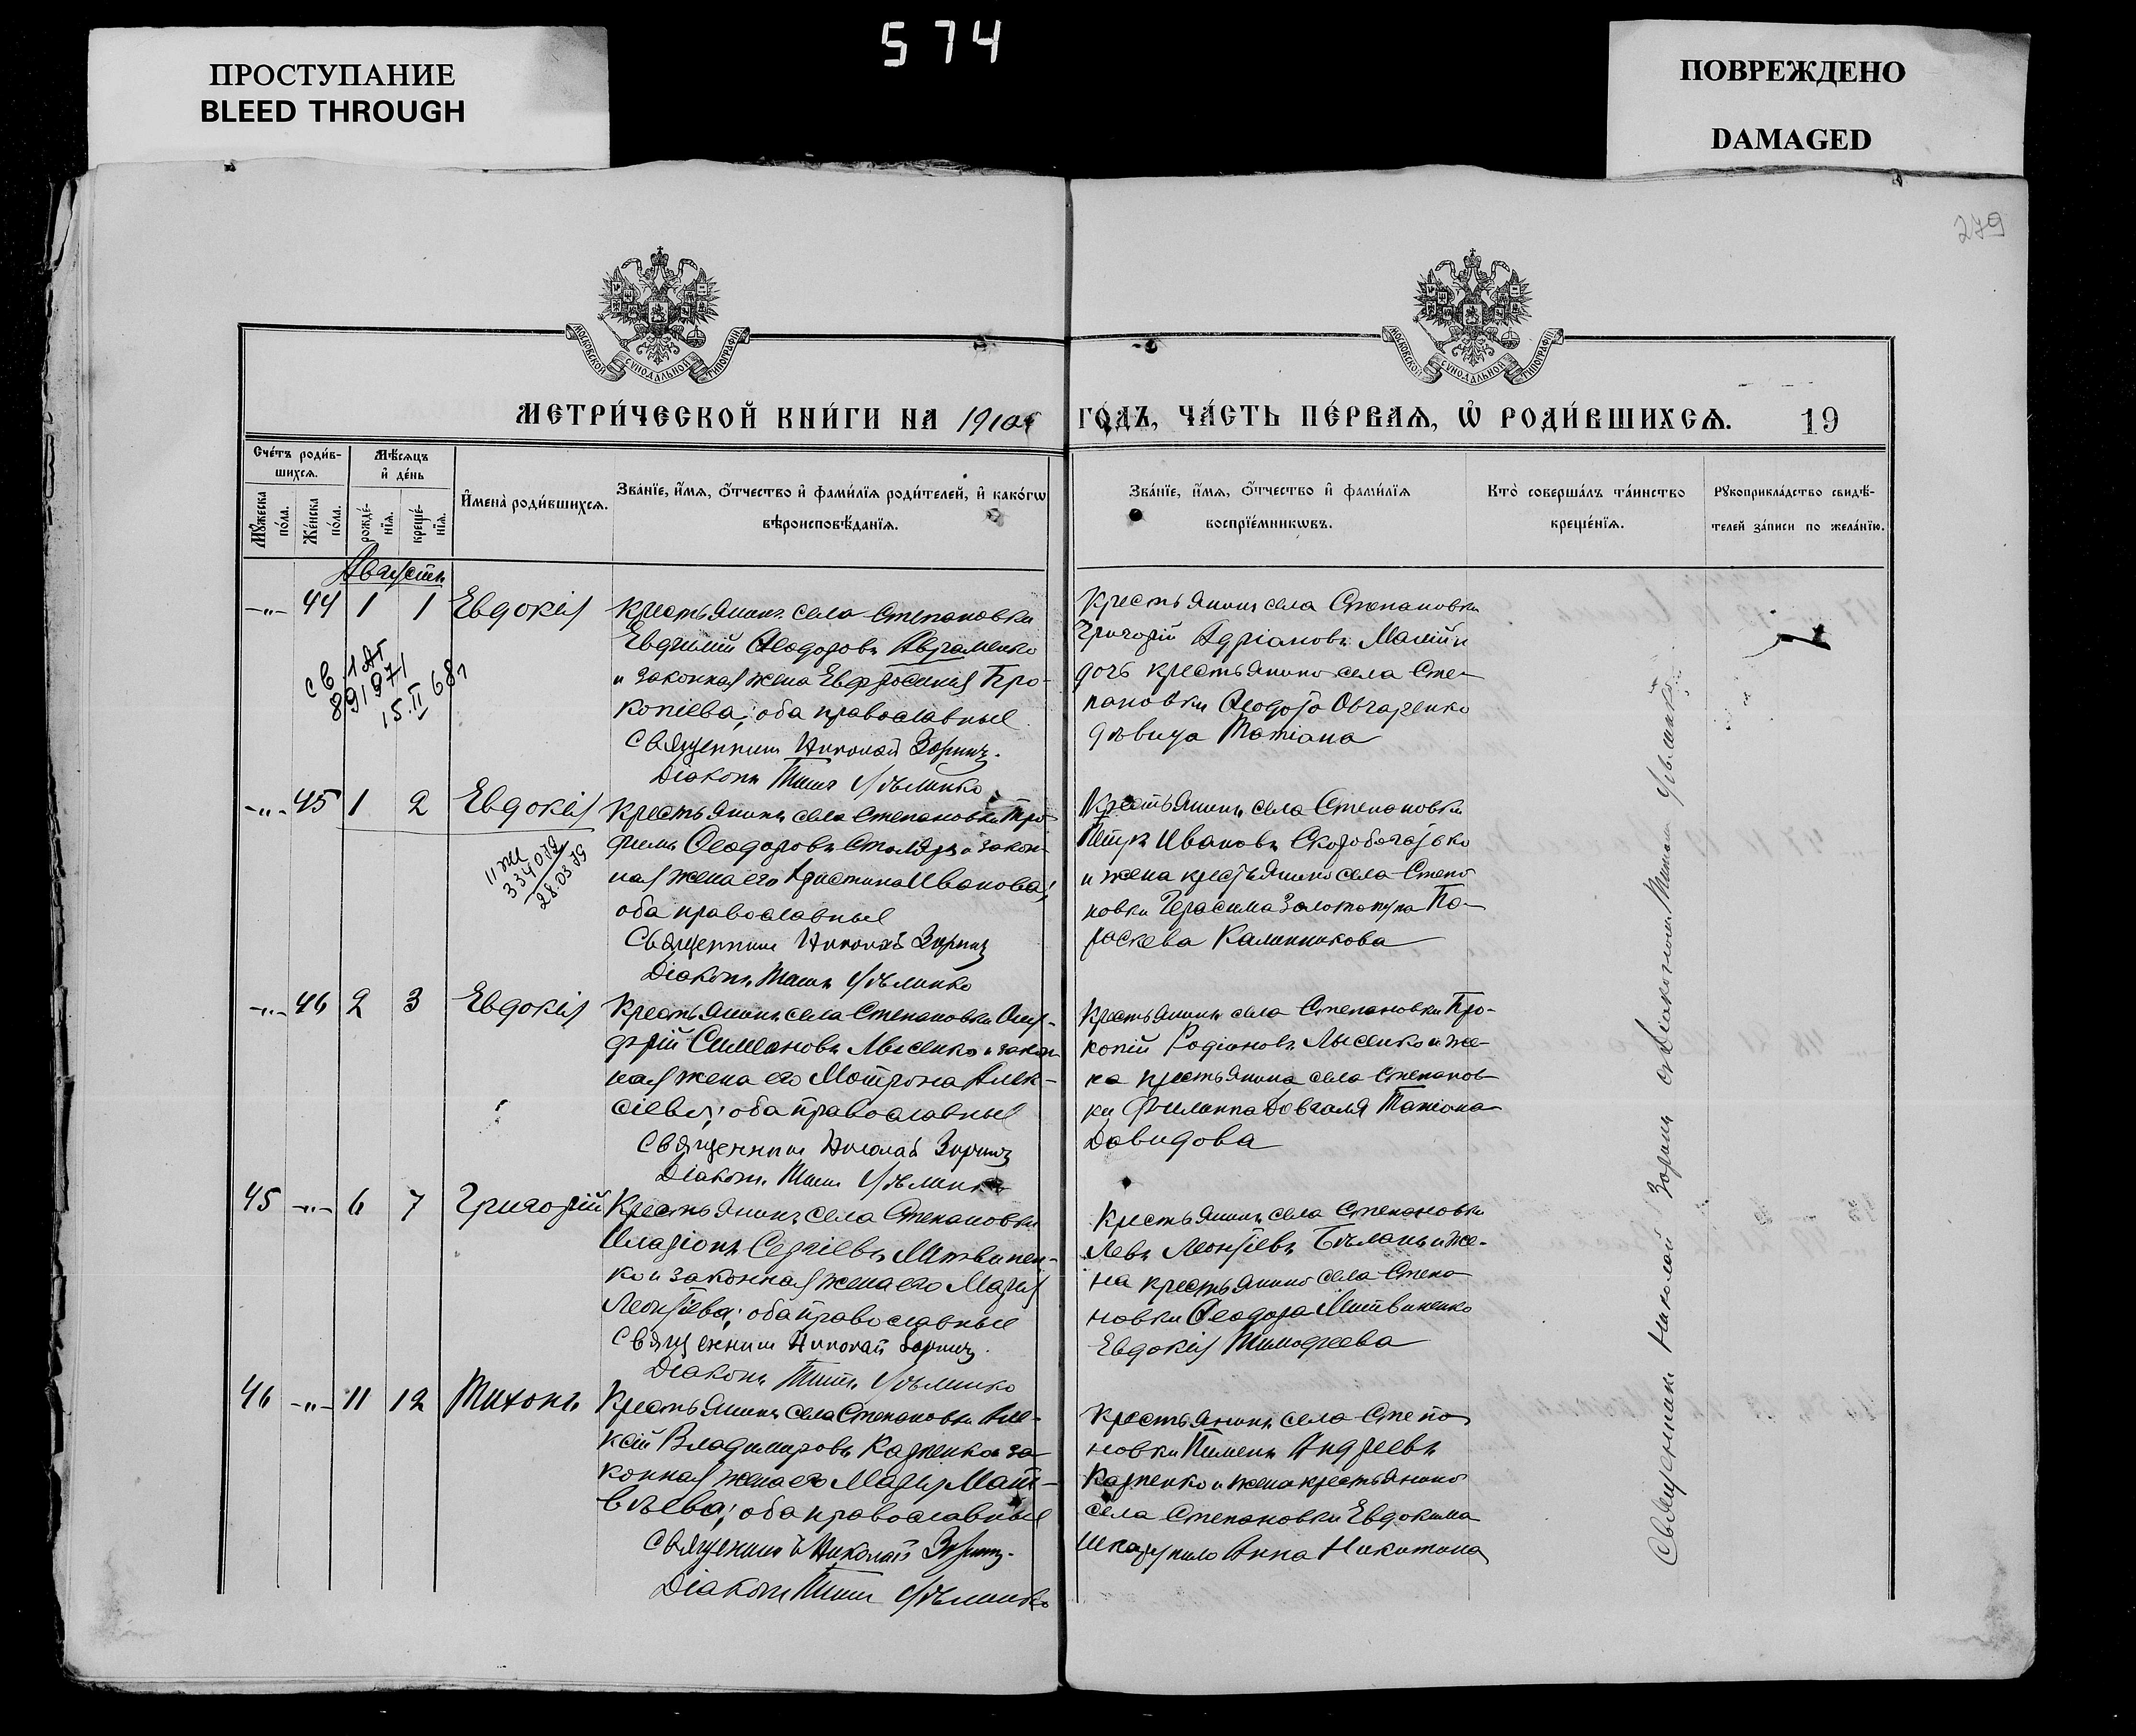 574
ПРОСТУПАНИЕ
BLEED THROUGH
ПОВРЕЖДЕНО
DAMAGED
279
МОСКОВСКОЙ СѴНОДАЛЬНОЙ ТИПОГРАФІИ
МОСКОВСКОЙ СѴНОДАЛЬНОЙ ТИПОГРАФІИ
МЕТРИ́ЧЕСКОЙ КНИ́ГИ НА 1910й
ГО́ДЪ, ЧА́СТЬ ПЕ́РВАѦ, Ѡ҆ РОДИ́ВШИХСѦ. 19
Сче́тъ роди́в-
шихсѧ.
Мꙋ́жеска
по́ла.
Же́нска
по́ла.
Мѣ́сѧцъ
и҆ де́нь
рожде́-
нїѧ.
креще́-
нїѧ.
И҆мена̀ роди́вшихсѧ.
Зва́нїе, и҆́мѧ, ѻ҆́тчество и҆ фами́лїѧ роди́телей, и҆ како́гѡ
вѣроисповѣ́данїѧ.
Зва́нїе, и҆́мѧ, ѻ҆́тчество и҆ фами́лїѧ
воспрїе́мникѡвъ.
Кто̀ соверша́лъ та́инство
креще́нїѧ.
Рꙋкоприкла́дство свидѣ́-
телей за́писи по жела́нїю.
Августъ
-"- 44 1 1 Евдокія
Крестьянинъ села Степановки
Евфимій Ѳеодоровъ Авраменко
и законная жена Евфросинія Про-
копіева; оба православные
Священникъ Николай Зоринъ.
Діаконъ Титъ
Крестьянинъ села Степановки
Григорій Адріановъ Малій и
дочь крестьянина села Сте-
пановки Ѳеодора Овчаренко
дѣвица Татіана
св
891971
15.II 68г
-"- 45 1 2 Евдокія
Крестьянинъ села Степановки Тро-
фимъ Ѳеодоровъ Столяръ и закон-
ная жена его Христина Иванова;
оба православные
Священникъ Николай Зоринъ
Діаконъ Титъ
Крестьянинъ села Степановки
Петръ Ивановъ Скоробагатько
и жена крестьянина села Степа
новки Герасима Золотопупа Па-
раскева Калинникова
334079
28.03 79
-"- 46 2 3 Евдокія
Крестьянинъ села Степановки Онуф-
рій Симеоновъ Лысенко и закон
ная жена его Мотрона Алек-
сіева; оба православные
Священникъ Николай Зоринъ
Діаконъ Титъ
Крестьянинъ села Степановки Про-
копій Родіоновъ Лысенко и же-
на крестьянина села Степанов
ки Филиппа Довгаля Татіана
Давидова
45 -"- 6 7 Григорій
Крестьянинъ села Степановки
Иларіонъ Сергіевъ Литвинен-
ко и законная жена его Марія
Леонтіева; оба православные
Священникъ Николай Зоринъ.
Діаконъ Титъ
Крестьянинъ села Степановки
Левъ Леонтіевъ Бѣлань и же-
на крестьянина села Степа
новки Ѳеодора Литвиненко
Евдокія Тимофеева
46 -"- 11 12 Тихонъ
Крестьянинъ села Степановки Але-
ксій Владимировъ Карпенко и за
конная жена его Марія Мат-
вѣева; оба православные
Священникъ Николай Зоринъ.
Діаконъ Титъ
Крестьянинъ села Степа
новки Пименъ Андреевъ
Карпенко и жена крестьянина
села Степановки Евдокима
Шкарупило Анна Никитина
Священникъ Николай Зоринъ съ Діакономъ Титомъ